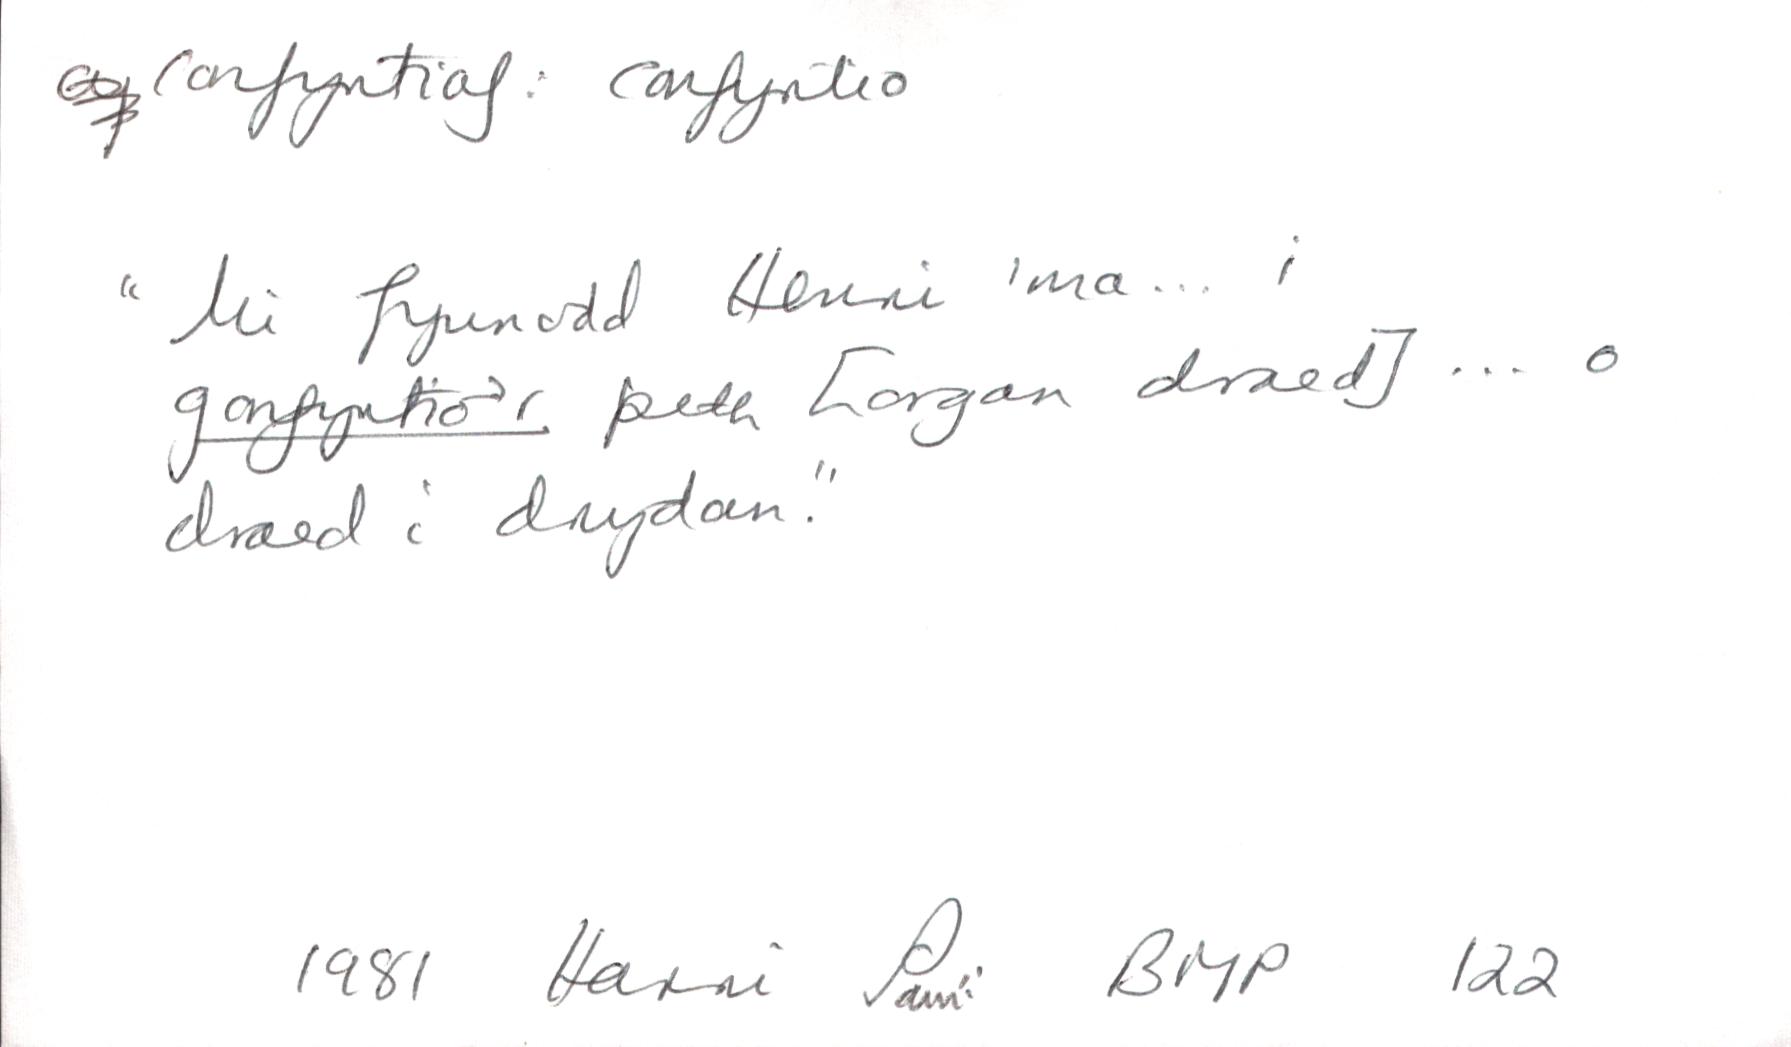 confyntiaf: confyntio
"Mi fynnodd Henri 'ma... i
gonfyntio'r peth [organ draed] ... o
draed i drydan."
1981 Harri Parri BMP 122